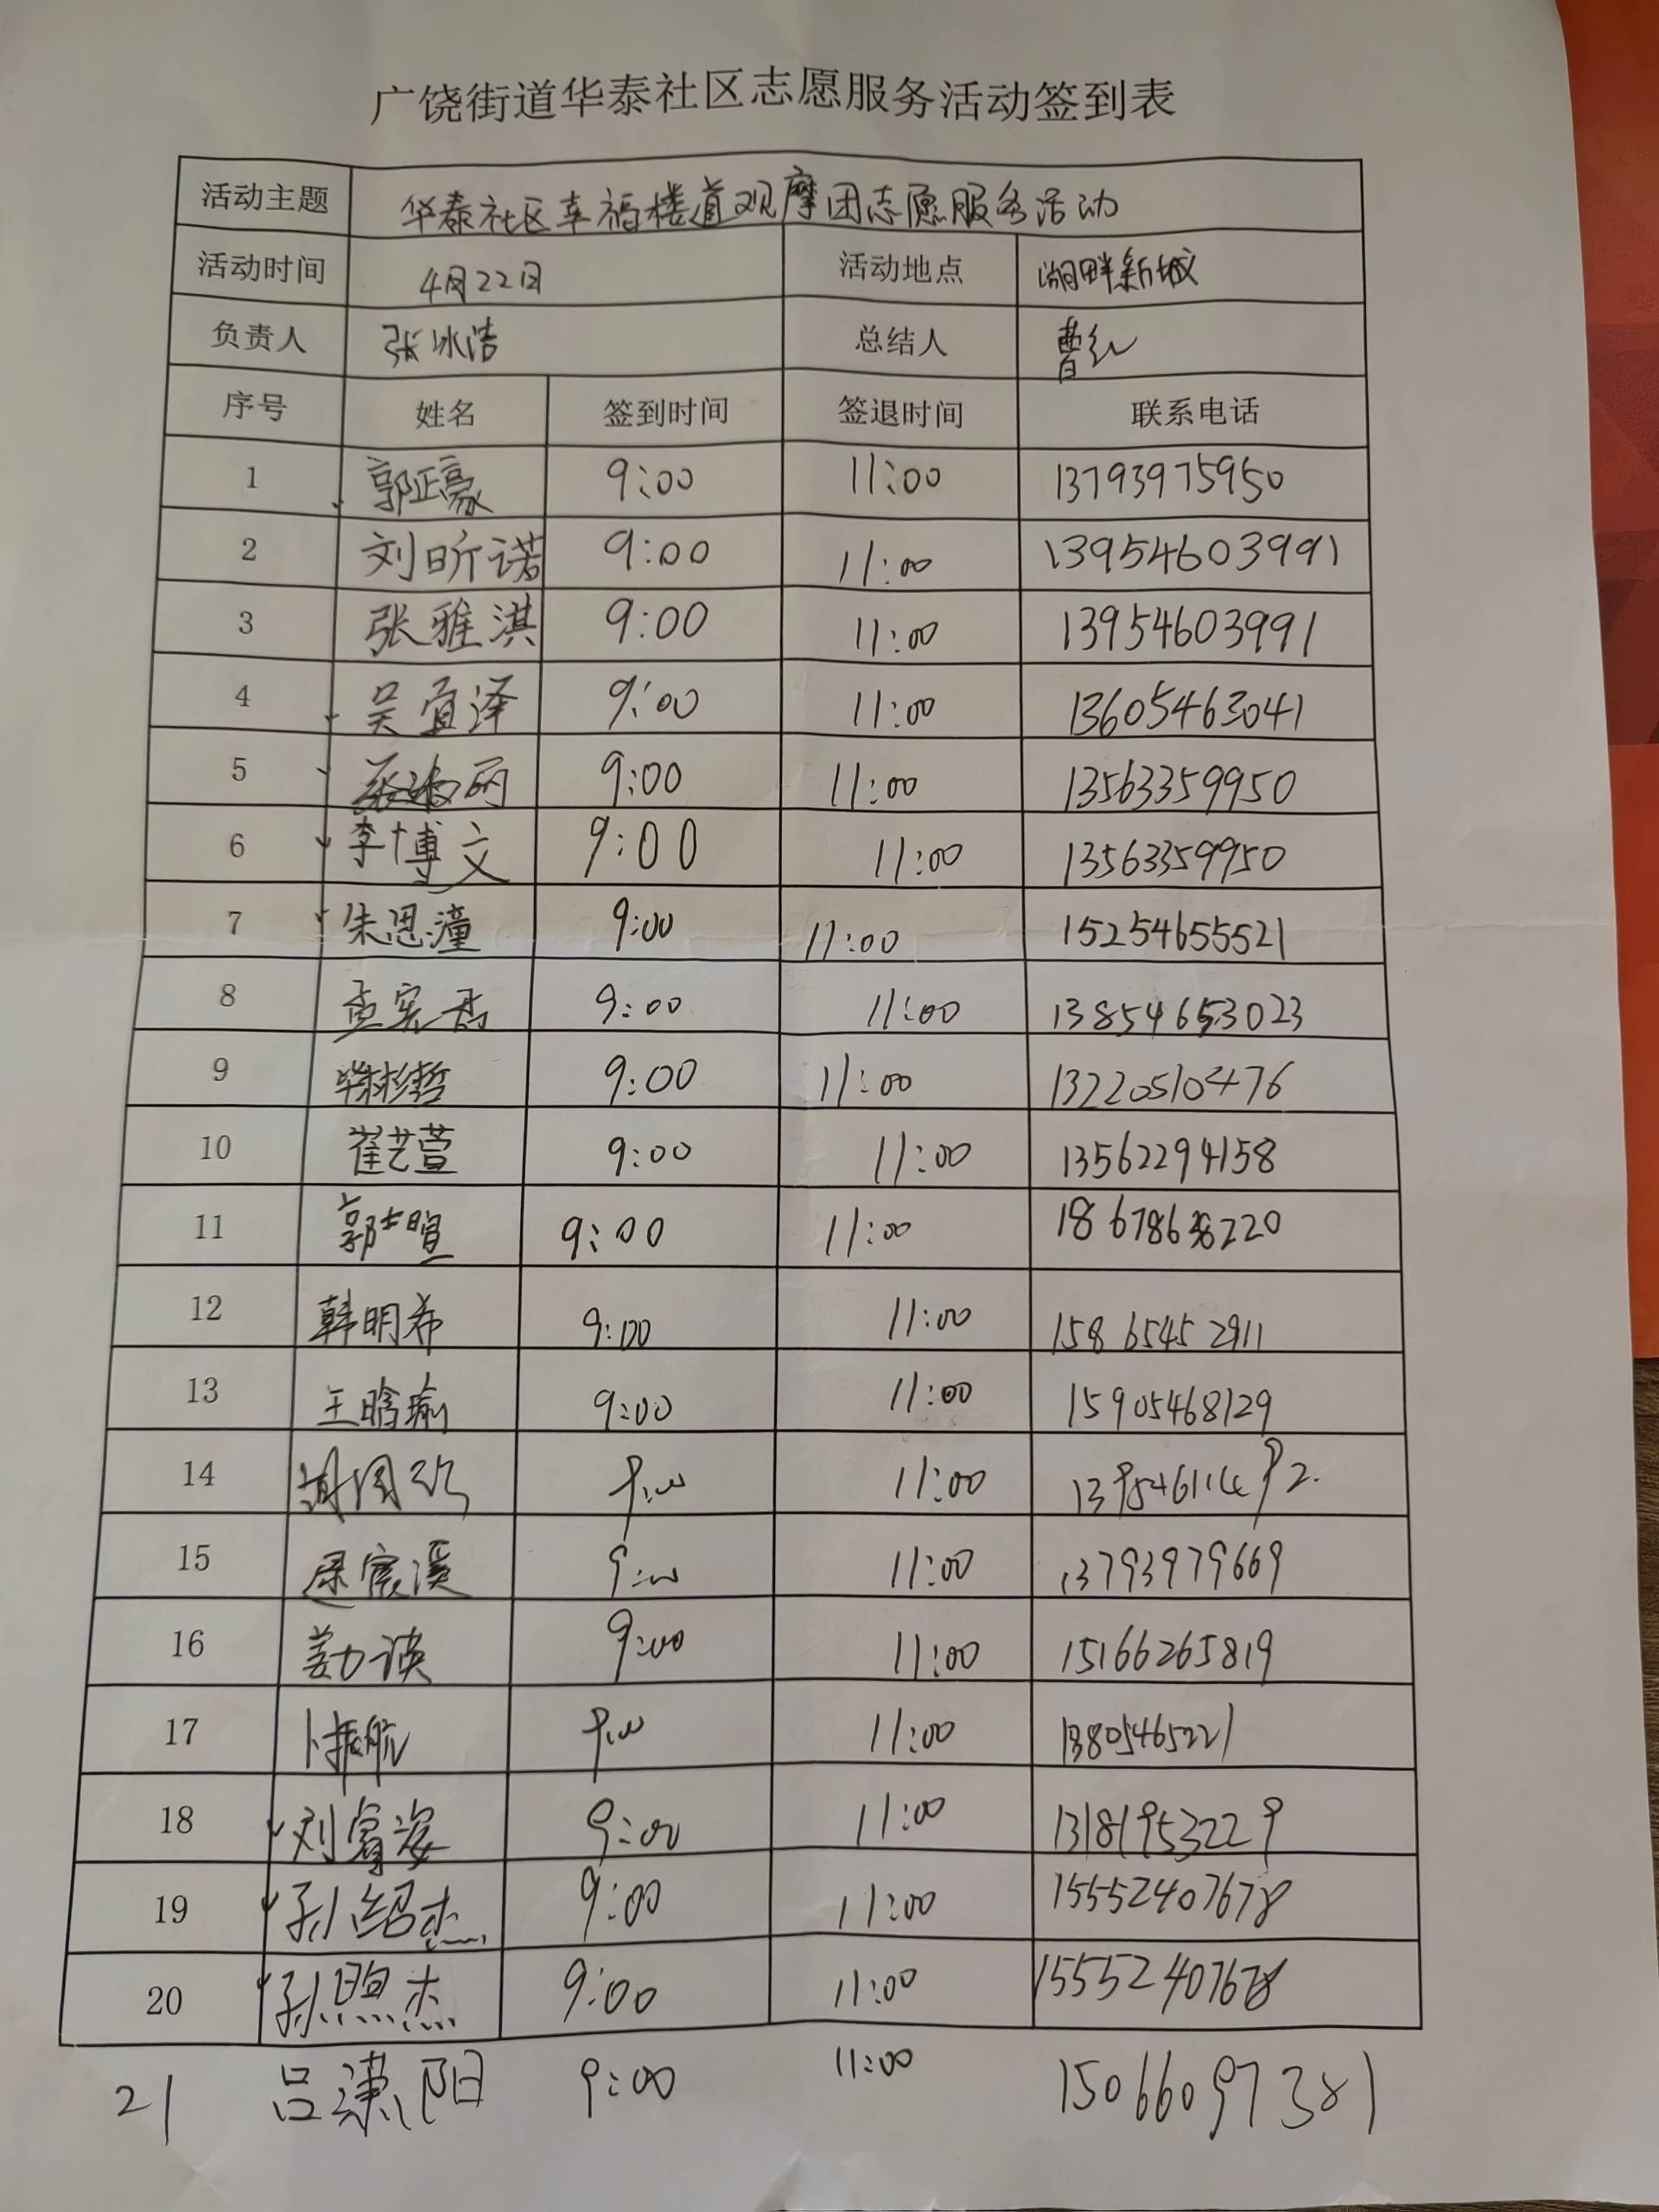 广饶街道华泰社区志愿服务活动签到表
活动主题 华泰社区幸福楼道观摩团志愿服务活动
活动时间 4月22日 活动地点 湖畔新城
负责人 张冰洁 总结人 曹红
序号 姓名 签到时间 签退时间 联系电话
1 郭正豪 9:00 11:00 13793975950
2 刘昕诺 9:00 11:00 13954603991
3 张雅淇 9:00 11:00 13954603991
4 吴宜泽 9:00 11:00 13605463041
5 9:00 11:00 13563359950
6 李博文 9:00 11:00 13563359950
7 朱思潼 9:00 11:00 15254655521
8 9:00 11:00 13854653023
9 9:00 11:00 13220510476
10 崔艺萱 9:00 11:00 13562294158
11 郭士暄 9:00 11:00
12 韩明希 9:00 11:00 15865452911
13 王晗瑜 9:00 11:00 15905468129
14 9:00 11:00
15 9:00 11:00 13793979669
16 9:00 11:00 15166265819
17 卜振航 9:00 11:00 13805465221
18 刘睿姿 9:00 11:00 13181953229
19 孙绍杰 9:00 11:00 15552407678
20 孙照杰 9:00 11:00 15552407678
21 吕潇阳 9:00 11:00 15066097381